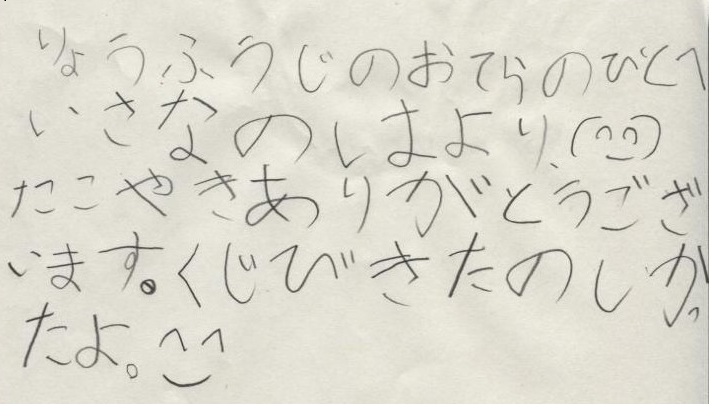 りょうふうじのおてらのびとへ
いさなのしまより、(^^)
たこやきありがとうござ
います。くじびきたのしかっ
たよ。^^